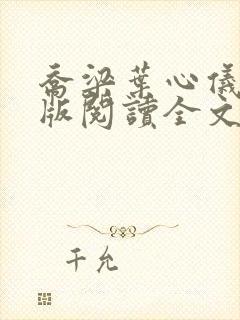 喬梁葉心儀
版閱讀全文
千允